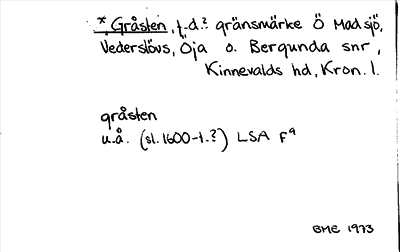 * Gråsten, f.d.? gränsmärke Ö Madsjö,
Vederslövs, Öja o. Bergunda snr,
Kinnevalds hd, Kron. l.
gråsten
u.å. (sl. 1600-t.?) LSA F9
BME 1973